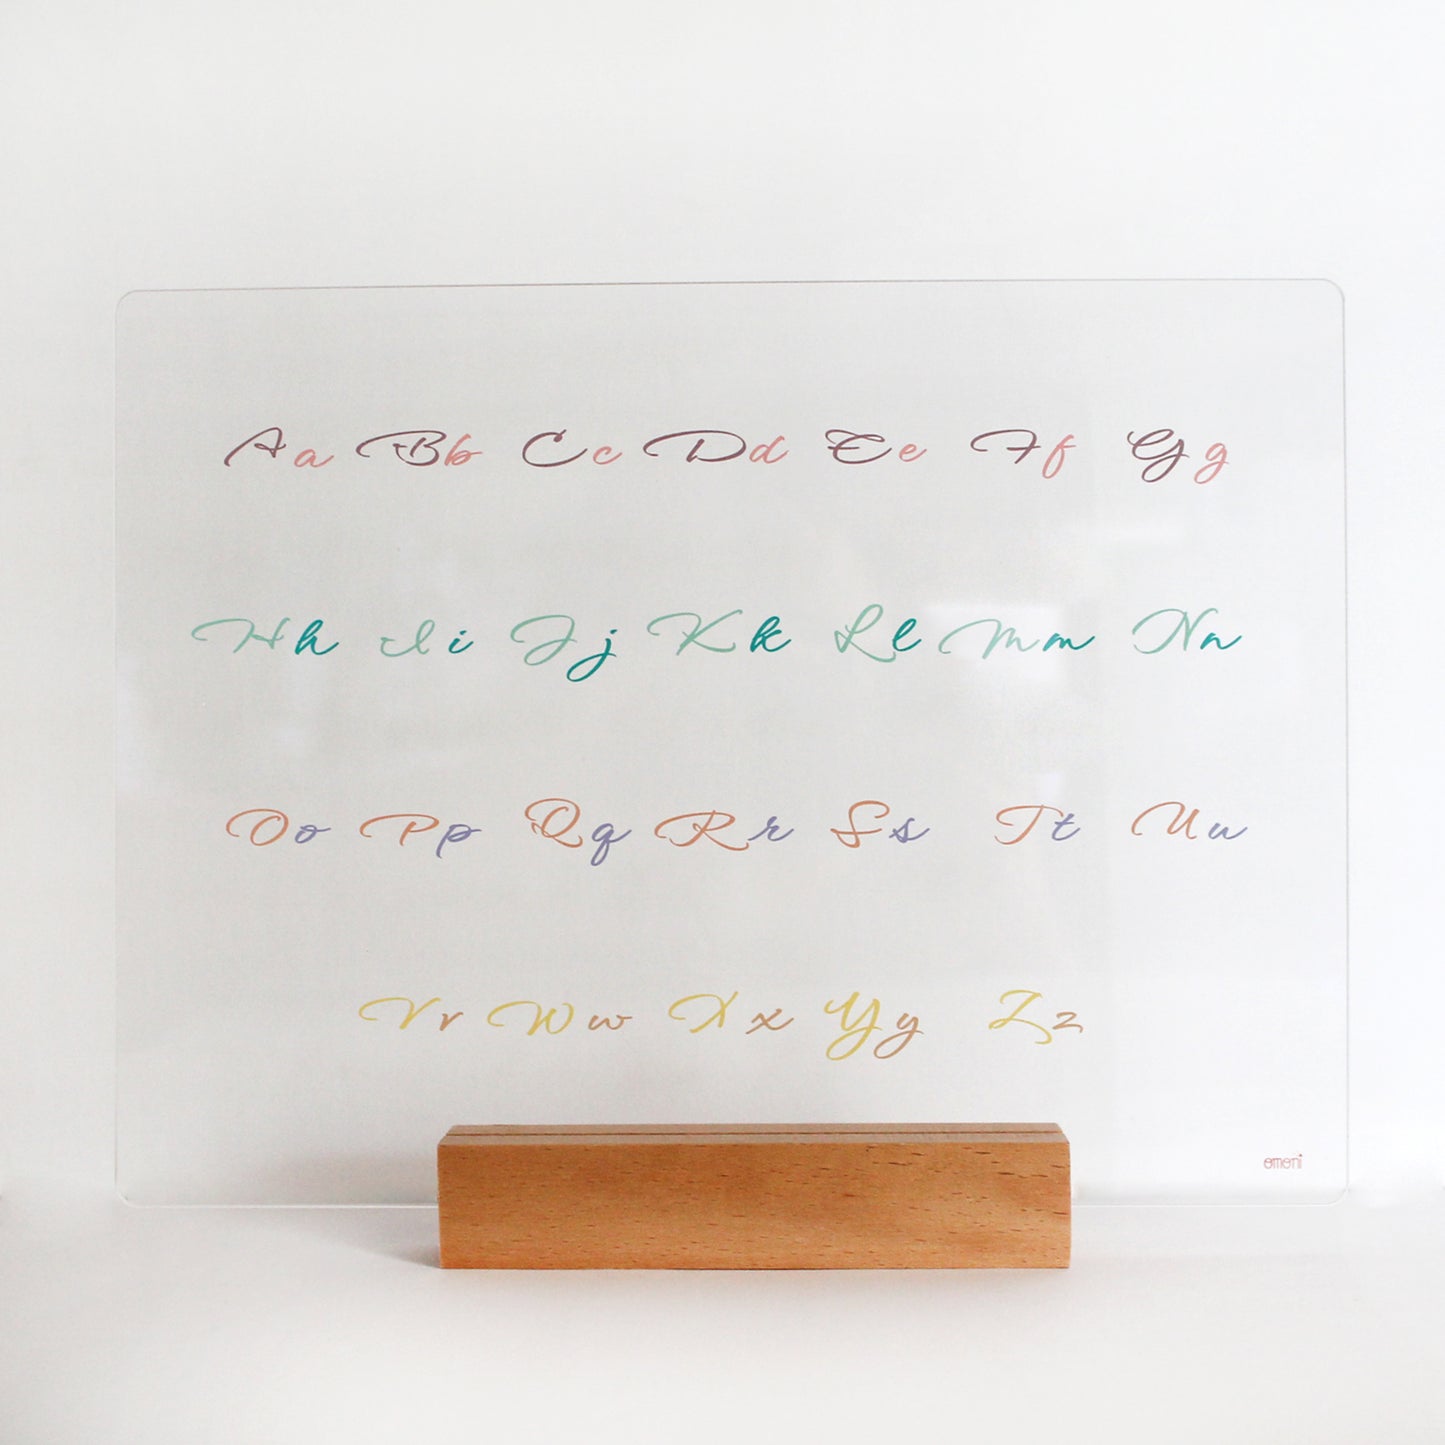 Aa Bb Cc Dd Ee Ff Gg
Hh Ii Jj Kk Ll Mm Nn
Oo Pp Qq Rr Ss Tt Uu
Vv Ww Xx Yy Zz
omoni